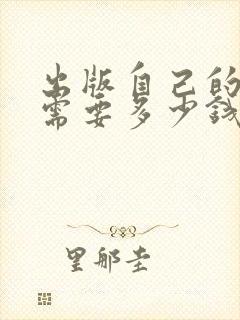 出版自己的
需要多少钱
里那圭